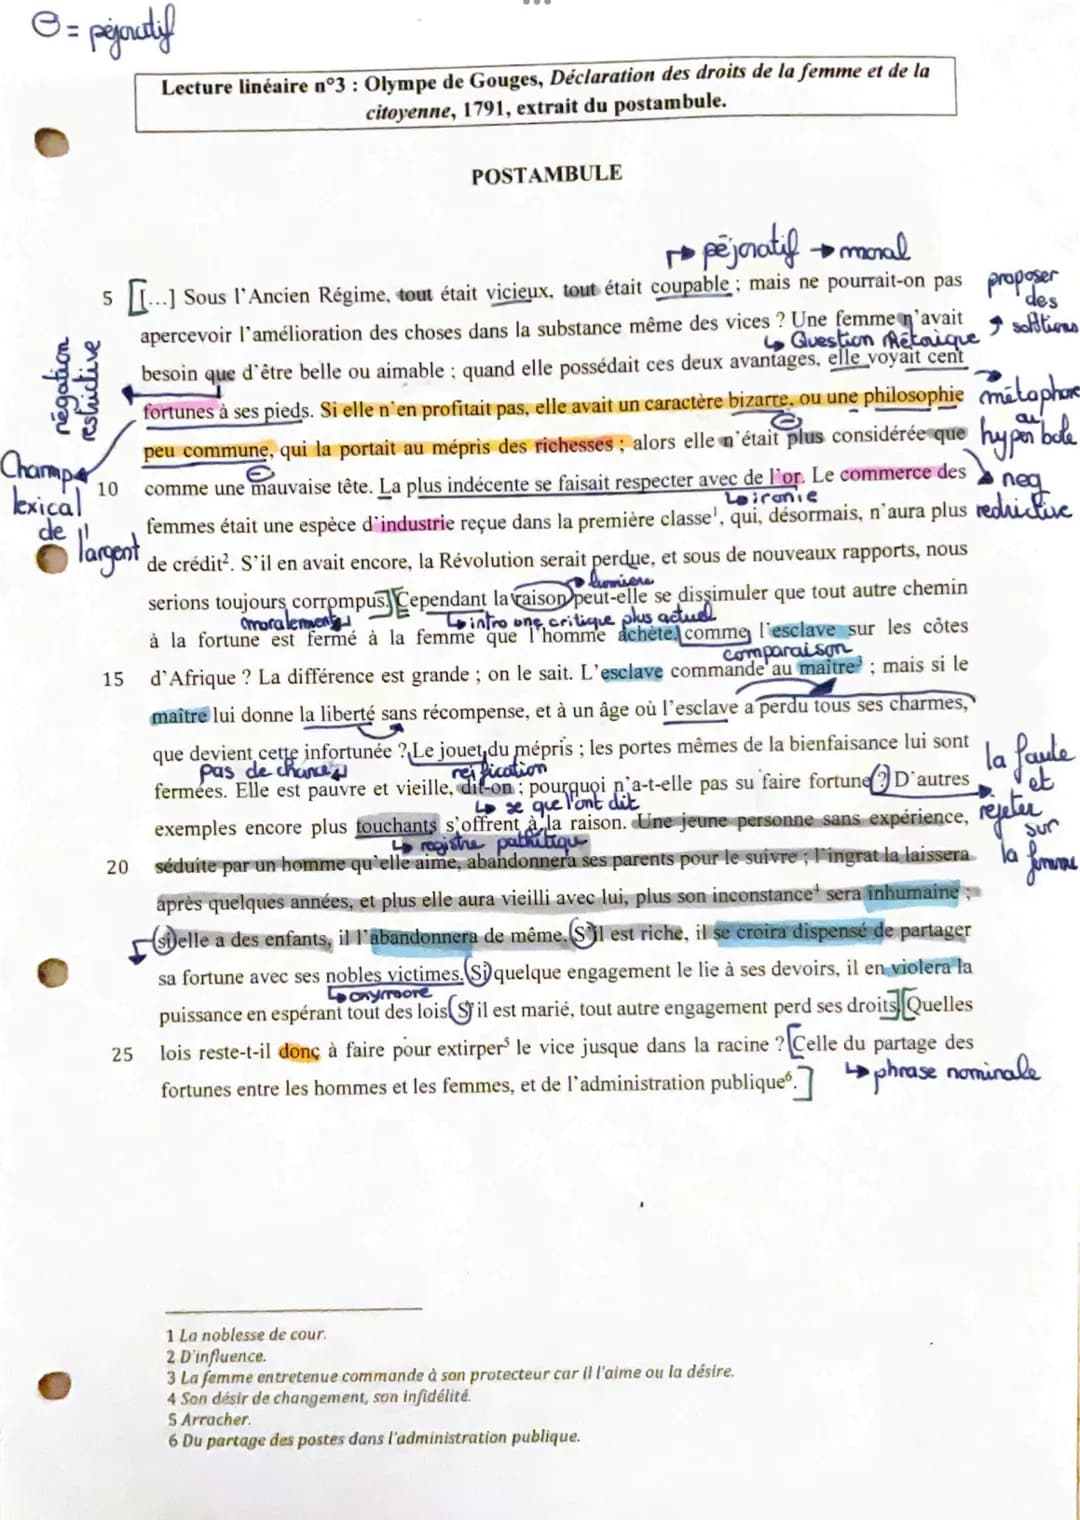 ⊖ = péjoratif
Lecture linéaire n°3 : Olympe de Gouges, Déclaration des droits de la femme et de la
citoyenne, 1791, extrait du postambule.
POSTAMBULE
↳ péjoratif → moral
5 [[...] Sous l'Ancien Régime, tout était vicieux, tout était coupable ; mais ne pourrait-on pas
proposer des solutions
apercevoir l'amélioration des choses dans la substance même des vices ? Une femme n'avait
↳ Question Rétorique
négation restrictive
besoin que d'être belle ou aimable ; quand elle possédait ces deux avantages, elle voyait cent
fortunes à ses pieds. Si elle n'en profitait pas, elle avait un caractère bizarre, ou une philosophie
métaphore au hyperbole
peu commune, qui la portait au mépris des richesses ; alors elle n'était plus considérée que
Champ lexical de l'argent
10 comme une mauvaise tête. La plus indécente se faisait respecter avec de l'or. Le commerce des
neg redrictive
↳ ironie
femmes était une espèce d'industrie reçue dans la première classe¹, qui, désormais, n'aura plus
de crédit². S'il en avait encore, la Révolution serait perdue, et sous de nouveaux rapports, nous
lumière
serions toujours corrompus.] [Cependant la raison peut-elle se dissimuler que tout autre chemin
moralement
↳ intro une critique plus actuel
à la fortune est fermé à la femme que l'homme achète, comme l'esclave sur les côtes
comparaison
15 d'Afrique ? La différence est grande ; on le sait. L'esclave commande au maître³ ; mais si le
maître lui donne la liberté sans récompense, et à un âge où l'esclave a perdu tous ses charmes,
que devient cette infortunée ? Le jouet du mépris ; les portes mêmes de la bienfaisance lui sont
pas de chance
reification
fermées. Elle est pauvre et vieille, dit-on ; pourquoi n'a-t-elle pas su faire fortune ? D'autres
la faute et rejeter sur la femme
↳ se que l'ont dit
exemples encore plus touchants s'offrent à la raison. Une jeune personne sans expérience,
↳ registre pathétique
20 séduite par un homme qu'elle aime, abandonnera ses parents pour le suivre ; l'ingrat la laissera
après quelques années, et plus elle aura vieilli avec lui, plus son inconstance⁴ sera inhumaine ;
si elle a des enfants, il l'abandonnera de même. S'il est riche, il se croira dispensé de partager
sa fortune avec ses nobles victimes. Si quelque engagement le lie à ses devoirs, il en violera la
↳ oxymore
puissance en espérant tout des lois. S'il est marié, tout autre engagement perd ses droits.] [Quelles
25 lois reste-t-il donc à faire pour extirper⁵ le vice jusque dans la racine ? [Celle du partage des
fortunes entre les hommes et les femmes, et de l'administration publique⁶.]
↳ phrase nominale
1 La noblesse de cour.
2 D'influence.
3 La femme entretenue commande à son protecteur car il l'aime ou la désire.
4 Son désir de changement, son infidélité.
5 Arracher.
6 Du partage des postes dans l'administration publique.